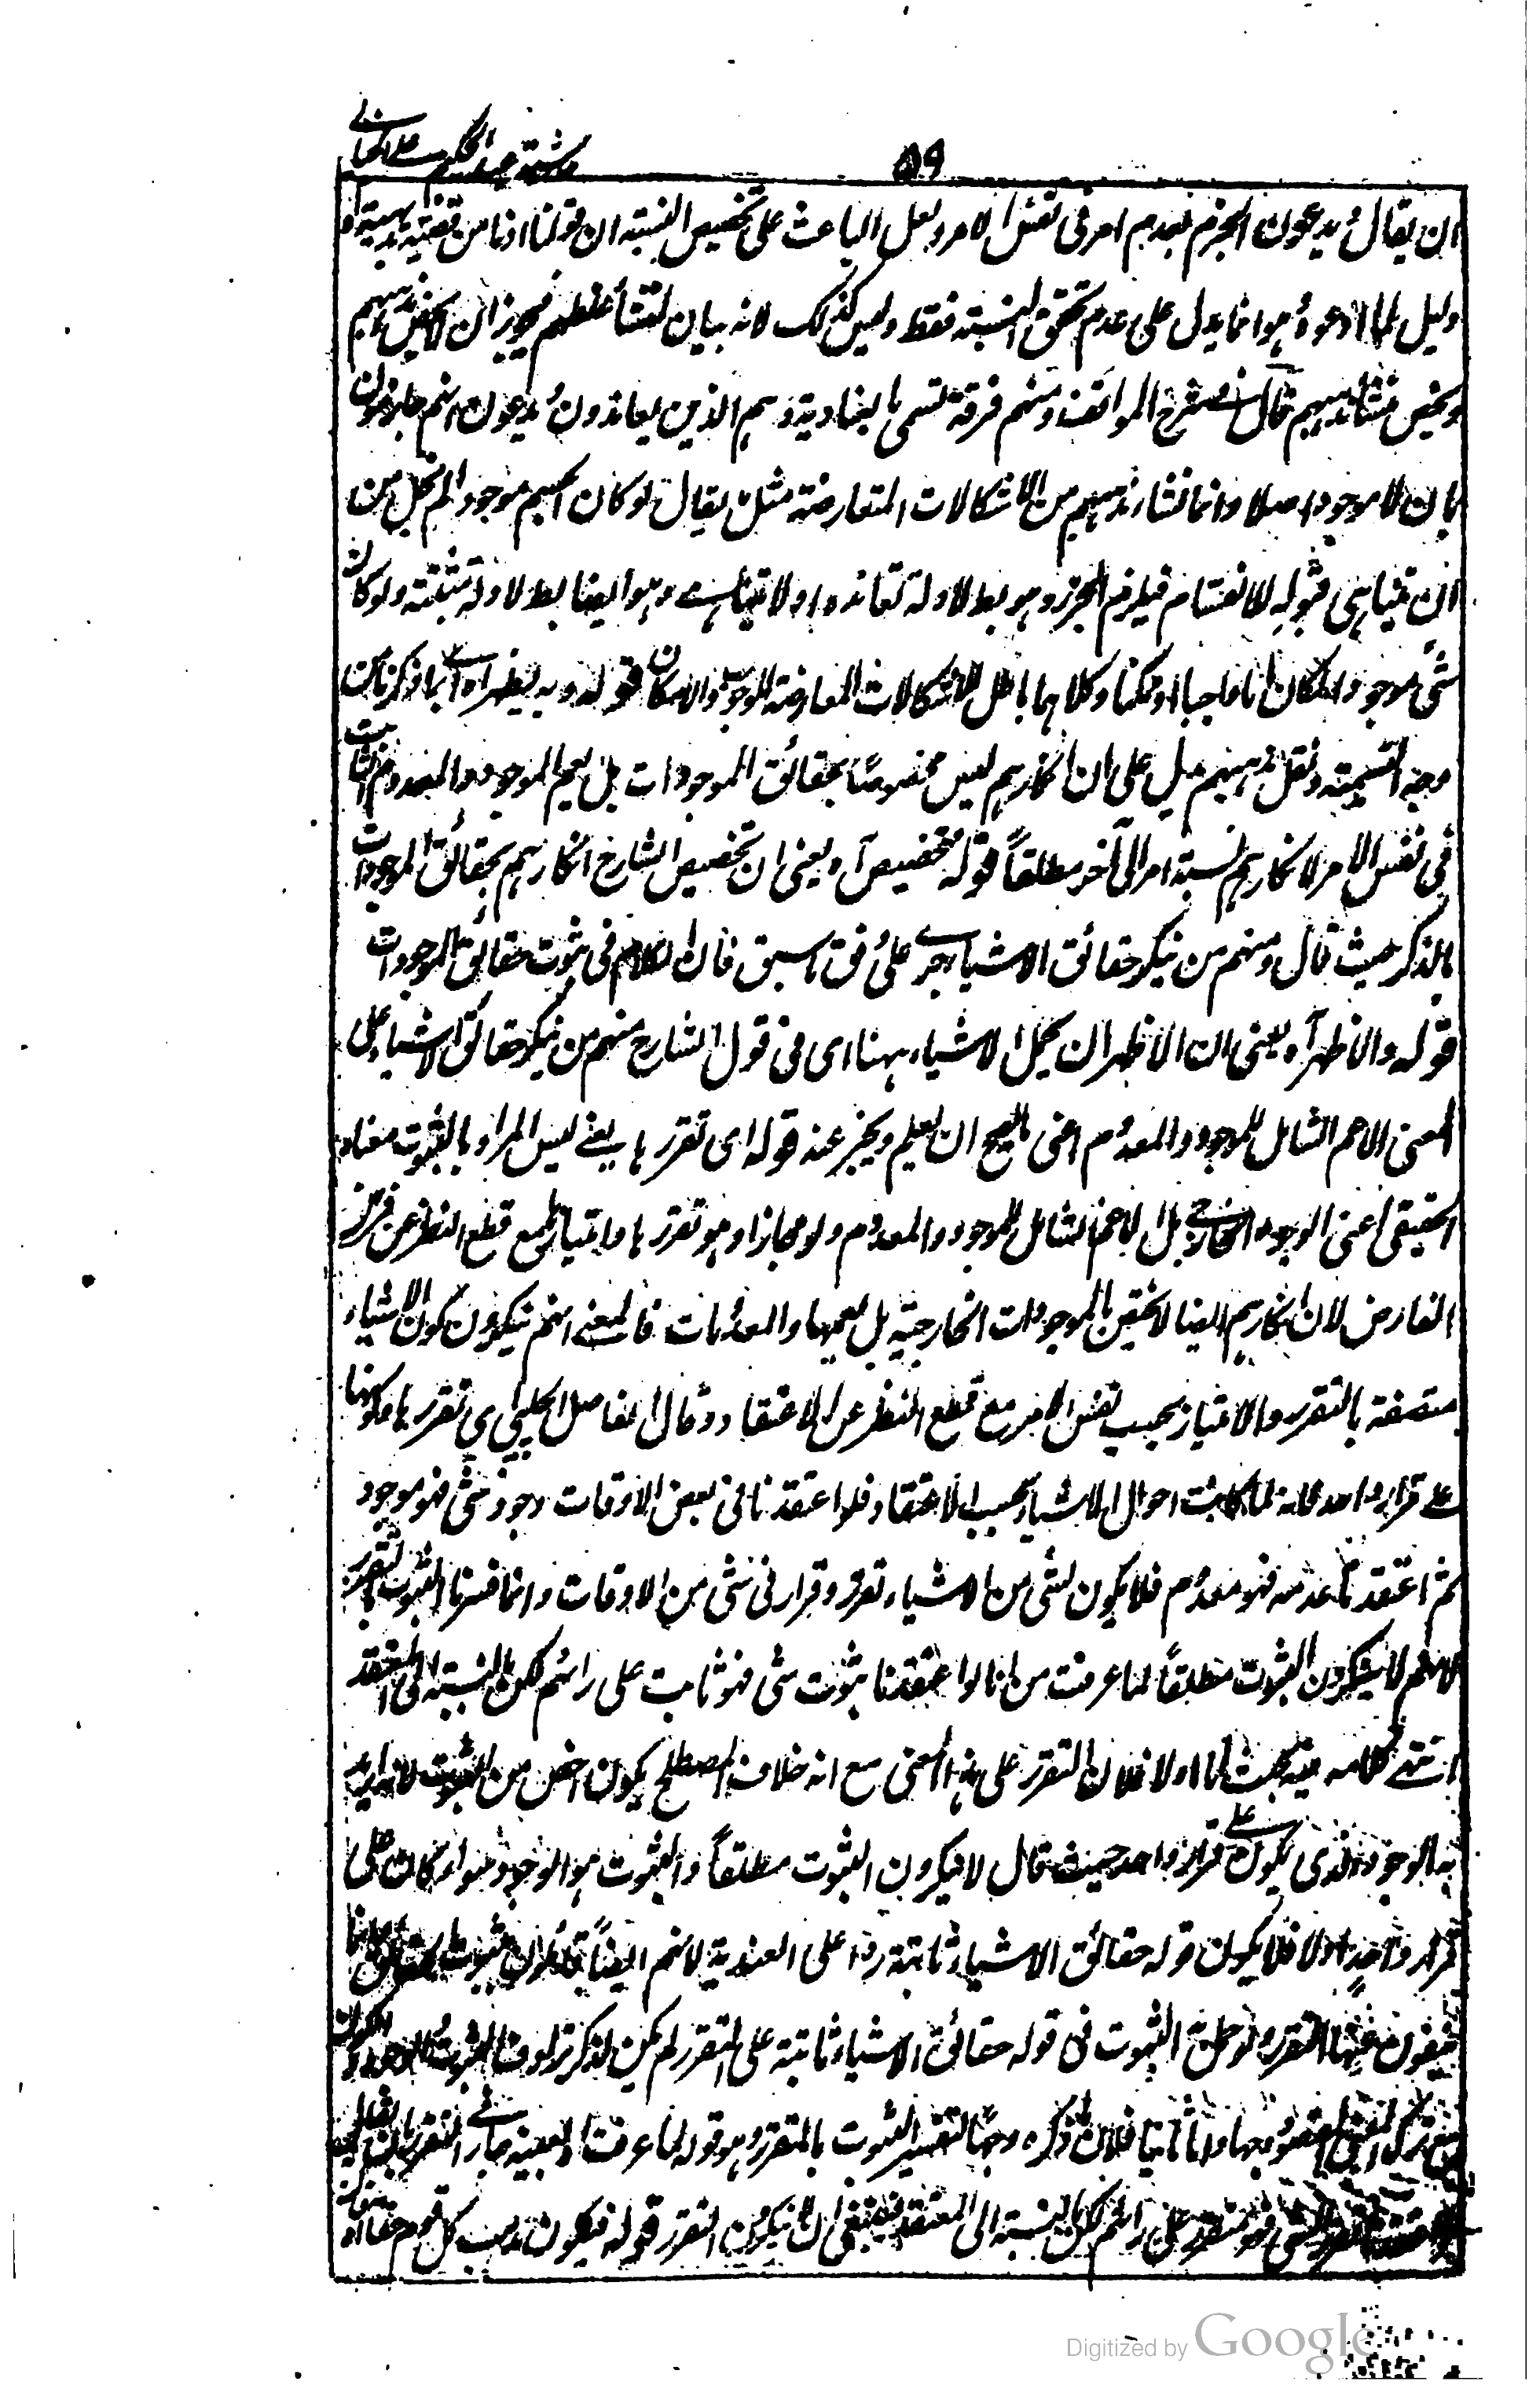 حاشية عبد الحكيم على الخيالي
٥٩
ان يقال يدعون الجزم بعدم امر في نفس الامر ولعل الباعث على تخصيص النسبة ان قولنا ما من قضية بديهية او
دليل لما ادعوه هو انما يدل على عدم تحقق النسبة فقط وليس كذلك لانه بيان لمنشأ غلطهم فيجوز ان لا يخص مذهبهم
ويخص منشأ مذهبهم قال في شرح المواقف ومنهم فرقة تسمى بالعنادية وهم الذين يعاندون يدعون انهم جازمون
بان لا موجود اصلا وانما نشأ مذهبهم من الاشكالات المتعارضة مثل يقال لو كان الجسم موجودا لم يخل من
ان يتناهى قبوله للانقسام فيلزم الجزء وهو بط لادلة نفاته او لا يتناهى وهو ايضا بط لادلة مثبتة ولو كان
شئ موجودا لكان اما واجبا او ممكنا وكلاهما باطل للاشكالات المعارضة للوجوب والامكان قوله وبه يظهر اه اى بما ذكرنا من
وجه التسمية ونقل مذهبهم يدل على ان انكارهم ليس مخصوصا بحقائق الموجودات بل يعم الموجود والمعدوم الثابت
في نفس الامر لانكارهم نسبة امر الى آخر مطلقاً قوله تخصيص آه يعنى ان تخصيص الشارح انكارهم بحقائق الموجودات
بالذكر حيث قال ومنهم من ينكر حقائق الاشياء جرى على وفق ما سبق فان الكلام في ثبوت حقائق الموجودات
قوله والاظهر آه يعنى ان الاظهر ان يحمل الاشياء ههنا اى في قول الشارح منهم من ينكر حقائق الاشياء على
المعنى الاعم الشامل للموجود والمعدوم اعنى ما يصح ان يعلم ويخبر عنه قوله اى تقررها يعنى ليس المراد بالثبوت معناه
الحقيقى اعنى الوجود الخارجي بل الاعم الشامل للموجود والمعدوم ولو مجازا وهو تقررها وامتيازها مع قطع النظر عن فرض
الفارض لان انكارهم ايضا لا يختص بالموجودات الخارجية بل يعمها والمعدومات فالمعنى انهم ينكرون كون الاشياء
متصفة بالتقرر والامتياز بحسب نفس الامر مع قطع النظر عن الاعتقاد وقال الفاضل الچلپى اى تقررها وكونها
على قرار واحد فانه لما كانت احوال الاشياء بحسب الاعتقاد فلو اعتقدنا في بعض الاوقات وجود شئ فهو موجود
ثم اعتقدنا عدمه فهو معدوم فلا يكون لشئ من الاشياء تقرر وقرار في شئ من الاوقات وانما فسرنا الثبوت بالتقرر
لانهم لا ينكرون الثبوت مطلقاً لما عرفت من انا لو اعتقدنا ثبوت شى فهو ثابت على رائهم لكن بالنسبة الى المعتقد
انتهى كلامه فيه بحث اما اولا فلان التقرر على هذا المعنى مع انه خلاف المصطلح يكون اخص من الثبوت لانه اريد
به الوجود الذى يكون على قرار واحد حيث قال لا ينكرون الثبوت مطلقاً والثبوت هو الوجود سواء كان على
قرار واحد او لا فلا يكون قوله حقائق الاشياء ثابتة ردا على العندية لانهم ايضاً قائلون بثبوت حقائق
ينفون عنها التقرر ولو حمل الثبوت في قوله حقائق الاشياء ثابتة على التقرر لم يكن لذكر ترادف الثبوت والوجود والكون
المعنى وجها واما ثانيا فلان ذكره وجها لتفسير الثبوت بالتقرر وهو قوله لما عرفت اه بعينه جار في التقرر بان يقال
لو اعتقدنا تقرر شئ فهو متقرر على رائهم لكن بالنسبة الى المعتقد فينبغى ان لا ينكرون التقرر قوله فيكون مذهب كل قوم حقا اه
Digitized by Google